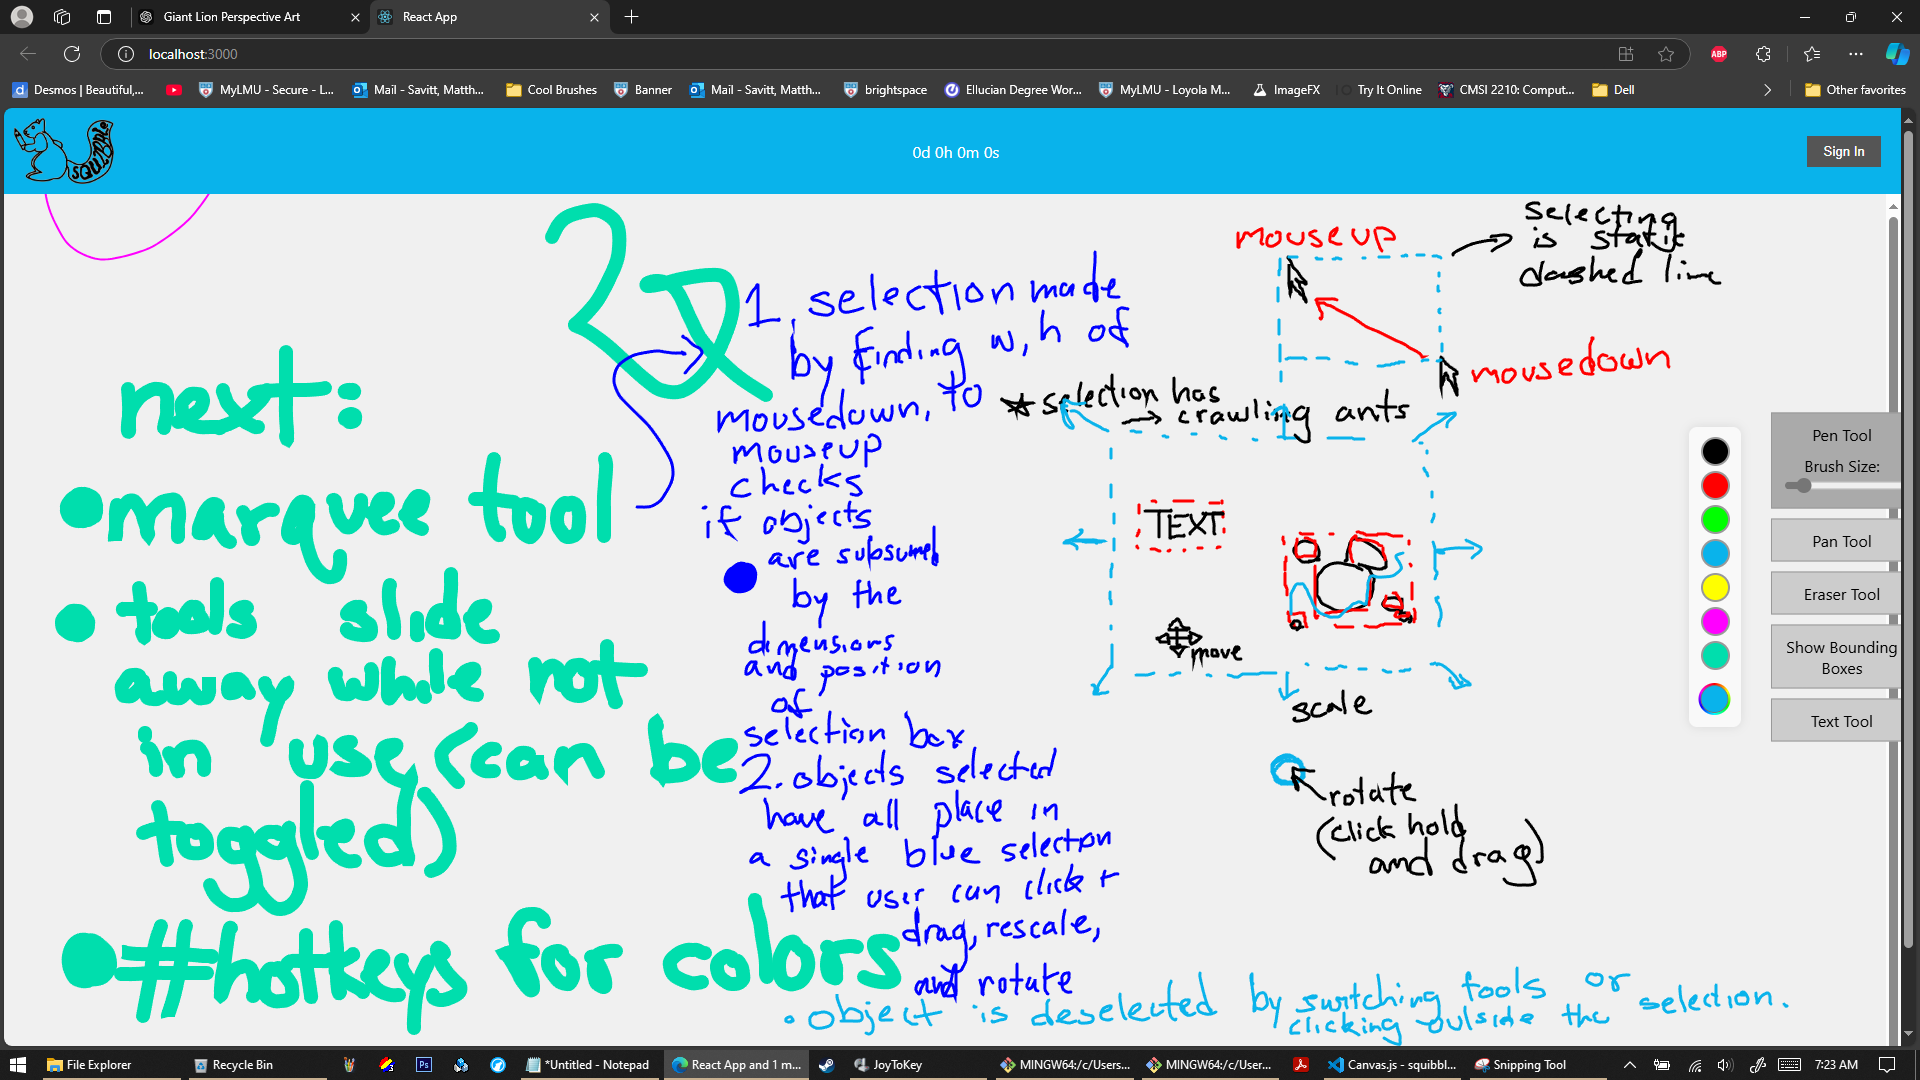 Giant Lion Perspective Art
React App
localhost:3000
ABP
Desmos | Beautiful,...
MyLMU - Secure - L...
Mail - Savitt, Matth...
Cool Brushes
Banner
Mail - Savitt, Matth...
brightspace
Ellucian Degree Wor...
MyLMU - Loyola M...
ImageFX
Try It Online
CMSI 2210: Comput...
Dell
Other favorites
SQUIBBLE
0d 0h 0m 0s
Sign In
next:
•marquee tool
• tools slide
away while not
in use (can be
toggled)
•#hotkeys for colors
1. selection made
by finding w, h of
mousedown, to
mouseup
checks
if objects
are subsumed
by the
dimensions
and position
of
selection box
2. objects selected
have all place in
a single blue selection
that user can click +
drag, rescale,
and rotate
• object is deselected by switching tools or
clicking outside the selection.
mouseup
mousedown
selecting
is static
dashed line
★ selection has
→ crawling ants
TEXT
move
scale
rotate
(click hold
and drag)
Pen Tool
Brush Size:
Pan Tool
Eraser Tool
Show Bounding
Boxes
Text Tool
File Explorer
Recycle Bin
Ps
*Untitled - Notepad
React App and 1 m...
JoyToKey
MINGW64:/c/Users...
MINGW64:/c/User...
Canvas.js - squibbl...
Snipping Tool
7:23 AM